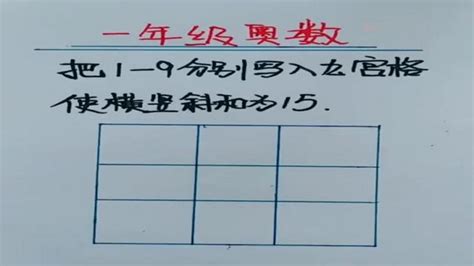 一年级奥数
把1-9分别写入九宫格
使横竖斜和为15.